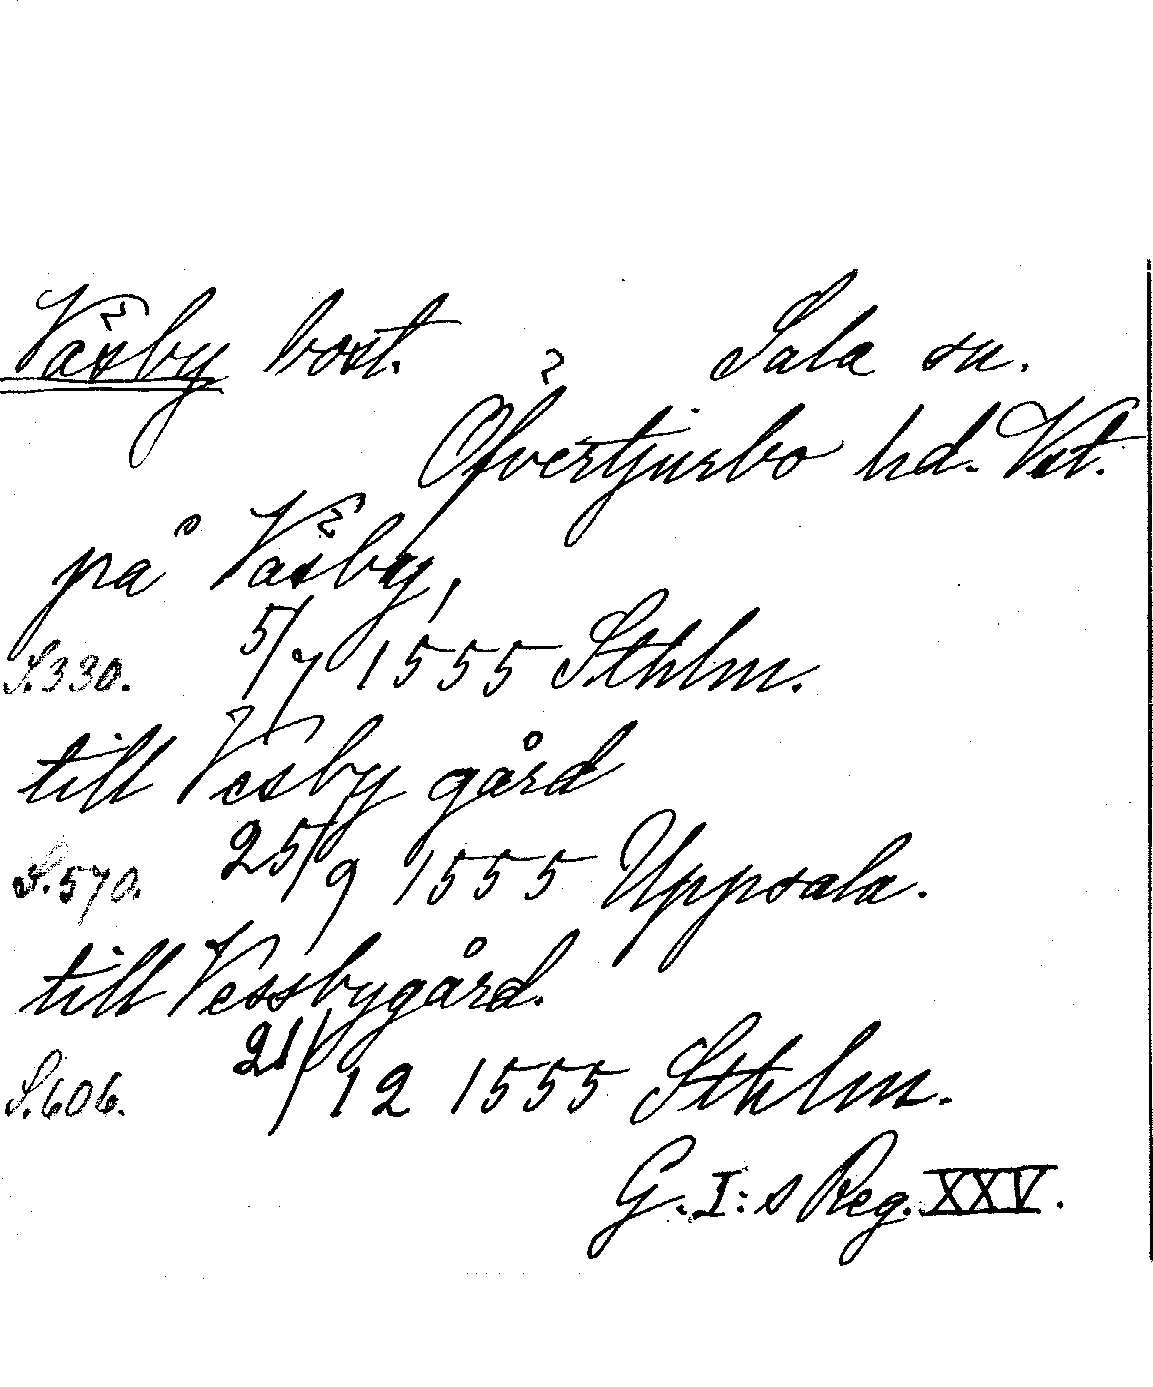 Väsby bost. ? Sala sn.
Öfvertjurbo hd. Vst.
på Väsby,
S. 330. 5/7 1555 Sthlm.
till Vesby gård
S. 570. 25/9 1555 Uppsala.
till Vessbygård.
S. 606. 21/12 1555 Sthlm.
G. I:s Reg. XXV.